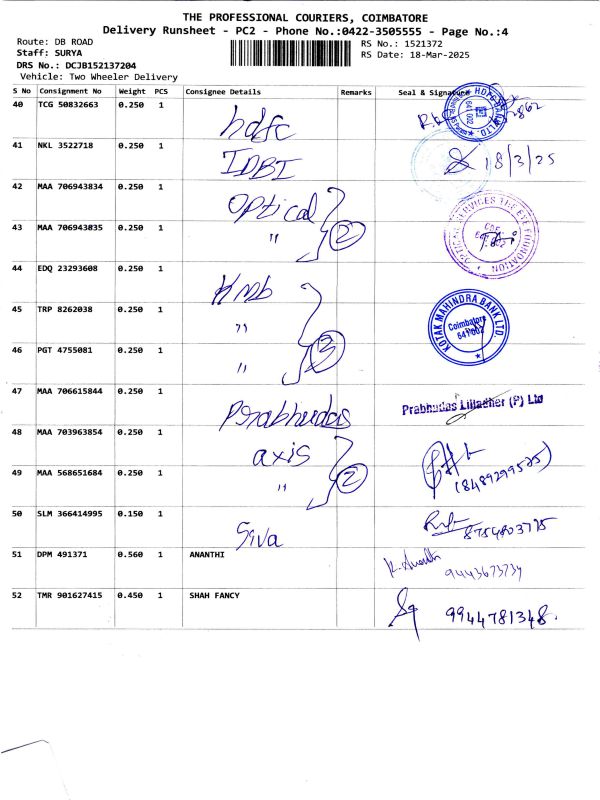 THE PROFESSIONAL COURIERS, COIMBATORE
Delivery Runsheet - PC2 - Phone No.:0422-3505555 - Page No.:4
Route: DB ROAD
RS No.: 1521372
Staff: SURYA
RS Date: 18-Mar-2025
DRS No.: DCJB152137204
Vehicle: Two Wheeler Delivery
S No Consignment No Weight PCS Consignee Details Remarks Seal & Signature
40 TCG 50832663 0.250 1 hdfc
41 NKL 3522718 0.250 1 IDBI 18/3/25
42 MAA 706943834 0.250 1 Optical
43 MAA 706943835 0.250 1 " 2
44 EDQ 23293608 0.250 1 Kmb
45 TRP 8262038 0.250 1 "
46 PGT 4755081 0.250 1 " 3
47 MAA 706615844 0.250 1 Prabhudas Prabhudas Lilladher (P) Ltd
48 MAA 703963854 0.250 1 axis
49 MAA 568651684 0.250 1 " 2 (8489299525)
50 SLM 366414995 0.150 1 Siva 8754803775
51 DPM 491371 0.560 1 ANANTHI 9443673739
52 TMR 901627415 0.450 1 SHAH FANCY 9944781348.
HDFC BANK LTD.
641 002
OPTICAL SERVICES THE EYE FOUNDATION
KOTAK MAHINDRA BANK LTD.
Coimbatore
641 002